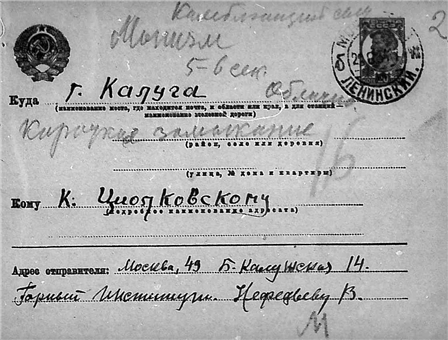 Колеблющийся
Мотизм
5-6 сек
Область
2
ЛЕНИНСКИЙ.
Куда г. Калуга
(наименование места, где находится почта, и области или края, а для станций — наименование железной дороги)
Короткое замыкание
(район, село или деревня)
(улица, № дома и квартиры)
Кому К. Циолковскому
(подробное наименование адресата)
Адрес отправителя: Москва, 49 Б-Калужская 14.
Горный Институт. Нефедьеву В.